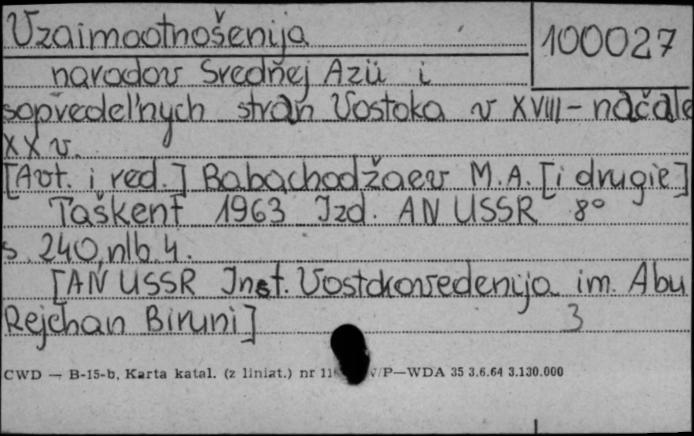 Vzaimootnošenija
100027
narodov Sredňej Azii i
sopředel'nych stran Vostoka v XVIII - načale
XX v.
[Avt. i red.] Babachodžaev M.A. [i drugie]
Taškent 1963 Izd. AN USSR 8°
s. 240, nlb. 4.
[AN USSR Inst. Vostokovedenija im. Abu
Rejchan Biruni] 3
CWD — B-15-b, Karta katal. (z liniat.) nr /P—WDA 35 3.6.64 3.130.000